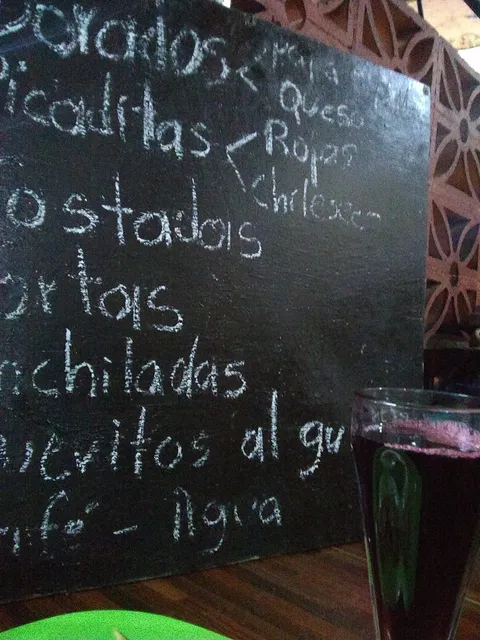 orados < Papa
Queso
icaditas < Rojas
chilesec
ostadas
ortas
nchiladas
uevitos al gu
afé - Agua